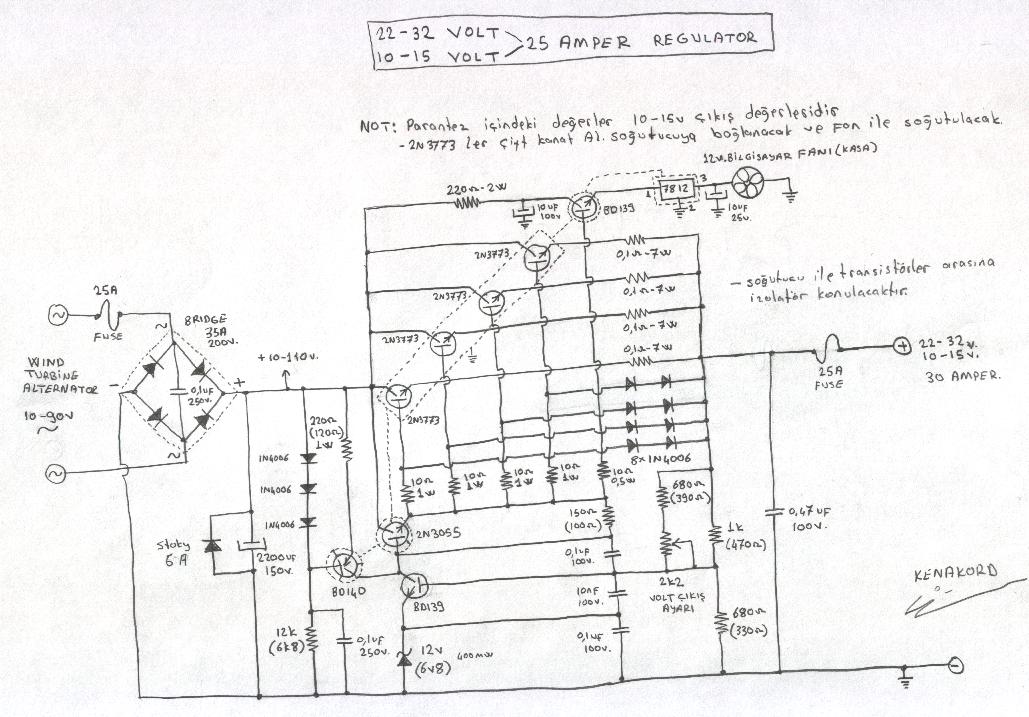 22-32 VOLT
10-15 VOLT
25 AMPER REGULATOR
NOT: Parantez içindeki değerler 10-15v çıkış değerlesidir
- 2N3773 ler çift kanat Al. soğutucuya bağlanacak ve Fan ile soğutulacak.
12v. BİLGİSAYAR FANI (KASA)
220Ω-2W
10uF
100v
BD139
1
7812
3
2
10uF
25v.
2N3773
0,1Ω-7W
2N3773
0,1Ω-7W
2N3773
0,1Ω-7W
0,1Ω-7W
2N3773
- soğutucu ile transistörler arasına
izolatör konulacaktır.
25A
FUSE
BRIDGE
35A
200v.
~
~
-
+
0,1uF
250v.
WIND
TURBINE
ALTERNATOR
10-90v
~
~
~
+10-110v.
22-32v.
10-15v.
30 AMPER.
+
25A
FUSE
220Ω
(120Ω)
1W
1N4006
1N4006
1N4006
8x1N4006
10Ω
1W
10Ω
1W
10Ω
1W
10Ω
1W
10Ω
0,5W
150Ω
(100Ω)
680Ω
(390Ω)
1k
(470Ω)
0,47uF
100v.
2N3055
Stoky
6A
2200uF
150v.
BD140
BD139
0,1uF
100v.
10nF
100v.
0,1uF
100v.
2k2
VOLT ÇIKIŞ
AYARI
680Ω
(330Ω)
12k
(6k8)
0,1uF
250v.
12v
(6v8)
400mW
KENAKORD
-